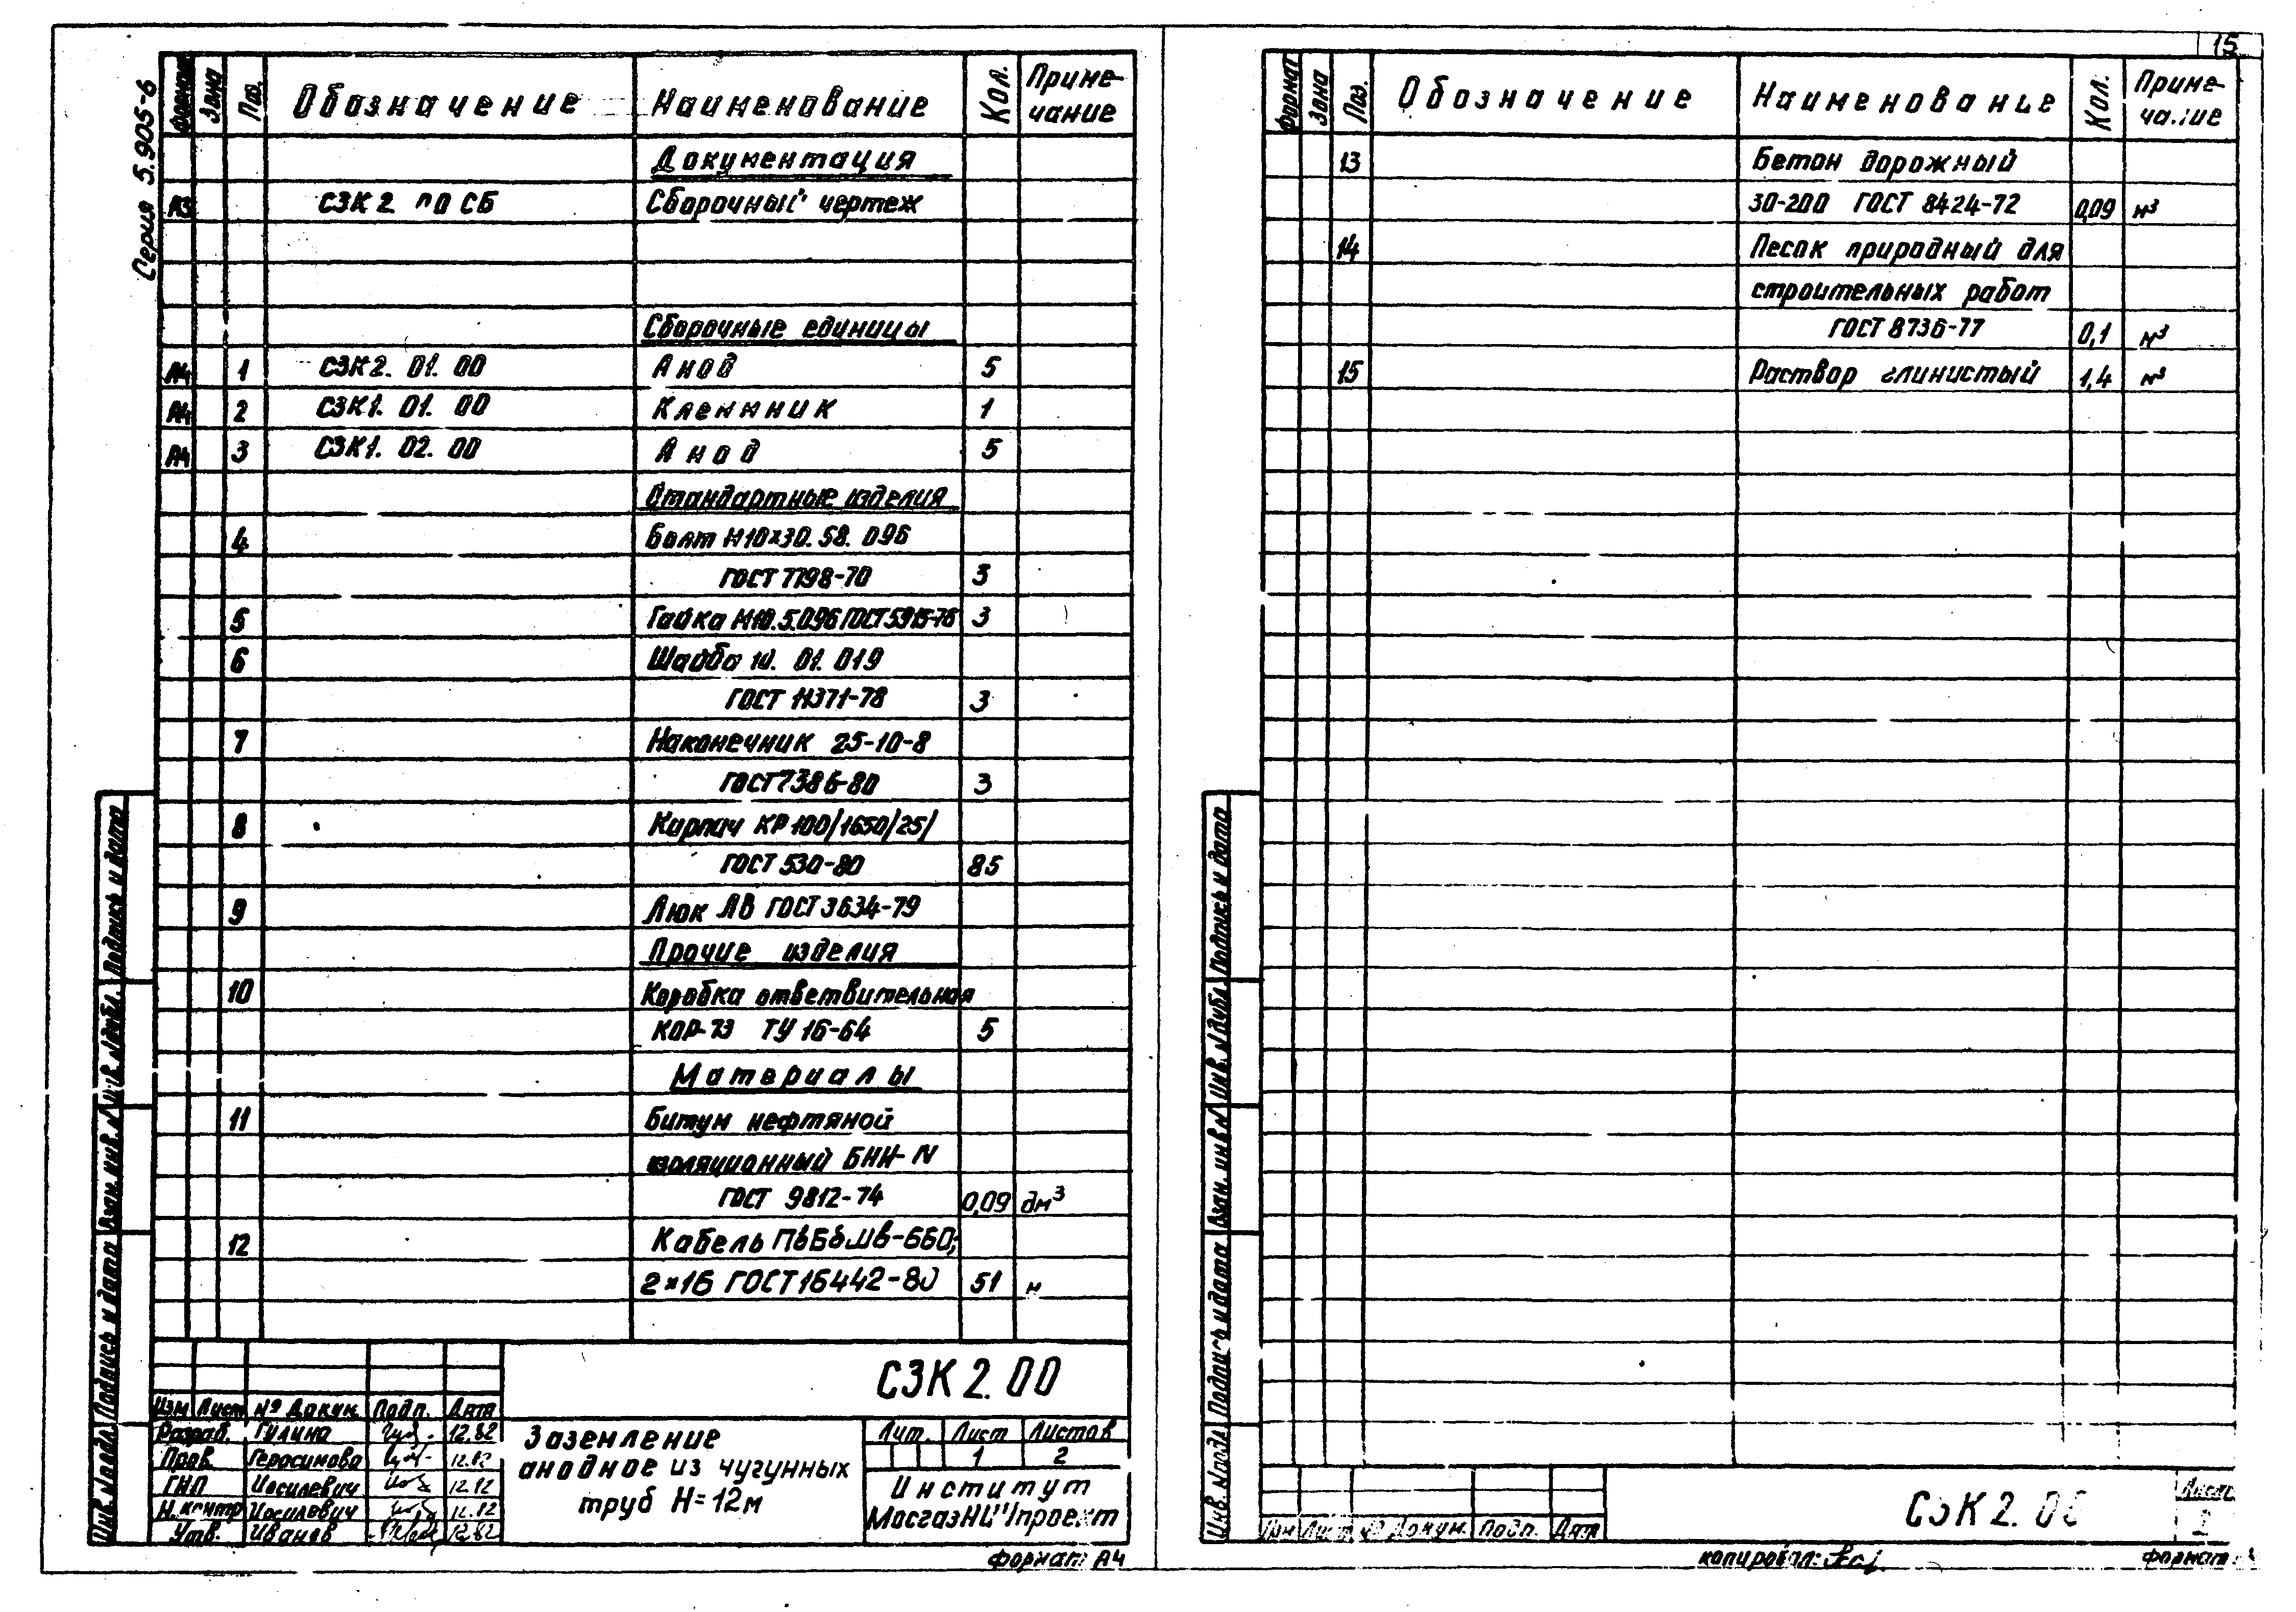 15
Серия 5.905-6
Формат Зона Поз. Обозначение Наименование Кол. Примечание
Документация
А3 СЗК 2. 00 СБ Сборочный чертеж
Сборочные единицы
А4 1 СЗК 2. 01. 00 Анод 5
А4 2 СЗК1. 01. 00 Клеммник 1
А4 3 СЗК1. 02. 00 Анод 5
Стандартные изделия
4 Болт М10×30. 58. 096
ГОСТ 7798-70 3
5 Гайка М10.5.096 ГОСТ 5915-76 3
6 Шайба 10. 01. 019
ГОСТ 11371-78 3
7 Наконечник 25-10-8
ГОСТ 7386-80 3
8 Кирпич КР 100/1650/25/
ГОСТ 530-80 85
9 Люк ЛВ ГОСТ 3634-79
Прочие изделия
10 Коробка ответвительная
КОР-73 ТУ 16-64 5
Материалы
11 Битум нефтяной
изоляционный БНИ-IV
ГОСТ 9812-74 0,09 дм³
12 Кабель ПвБбШв-660;
2×16 ГОСТ 16442-80 51 м
Инв. № подл. Подпись и дата Взам. инв. № Инв. № дубл. Подпись и дата
СЗК 2. 00
Изм Лист № Докум. Подп. Дата
Разраб. Гулина 12.82
Пров. Герасимова 12.82
ГИП Иосилевич 12.82
Н. контр Иосилевич 12.82
Утв. Иванов 12.82
Заземление
анодное из чугунных
труб Н=12м
Лит. Лист Листов
1 2
Институт
МосгазНИИпроект
Формат А4
Формат Зона Поз. Обозначение Наименование Кол. Примечание
13 Бетон дорожный
30-200 ГОСТ 8424-72 0,09 м³
14 Песок природный для
строительных работ
ГОСТ 8736-77 0,1 м³
15 Раствор глинистый 1,4 м³
Инв. № подл Подпись и дата Взам. инв № Инв. № дубл. Подпись и дата
Изм Лист № Докум. Подп. Дата
СЗК 2. 00
Лист
2
копировал:
Формат